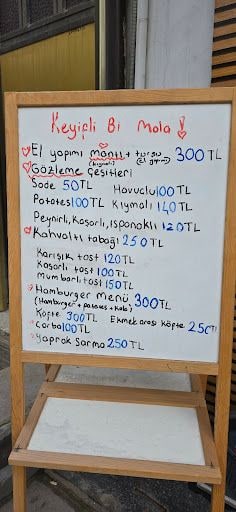 Keyifli Bi Mola
El yapımı mantı + turşu 300 TL
(kıymalı) (El yapımı)
Gözleme Çeşitleri
Sade 50 TL Havuclu 100 TL
Patates 100 TL Kıymalı 140 TL
Peynirli, Kaşarlı, Ispanaklı 120 TL
Kahvaltı tabağı 250 TL
Karışık tost 120 TL
Kaşarlı tost 100 TL
Mumbarlı tost 150 TL
Hamburger Menü 300 TL
(Hamburger + patates + kola)
Köfte 300 TL Ekmek arası Köfte 250 TL
Çorba 100 TL
Yaprak Sarma 250 TL